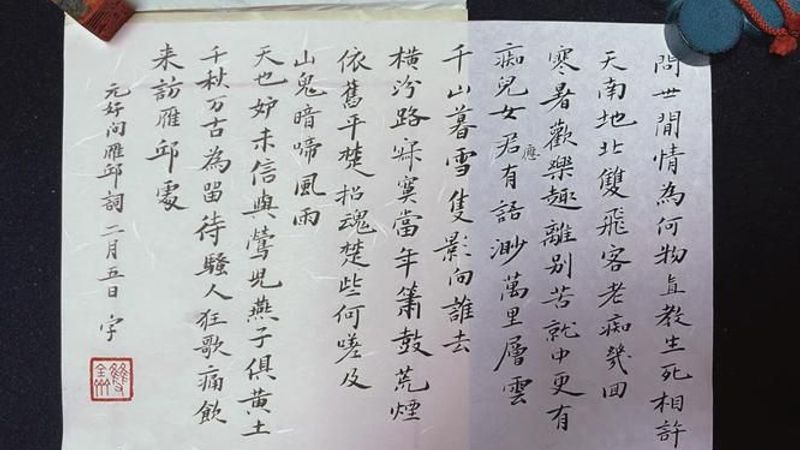 問世間情為何物直教生死相許
天南地北雙飛客老痴幾回
寒暑歡樂趣離別苦就中更有
痴兒女君應有語渺萬里層雲
千山暮雪隻影向誰去
橫汾路寂寞當年簫鼓荒煙
依舊平楚招魂楚些何嗟及
山鬼暗啼風雨
天也妒未信與鶯兒燕子俱黃土
千秋万古為留待騷人狂歌痛飲
来訪雁邱處
元好问雁邱詞二月五日 字